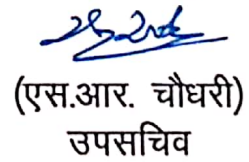 (एस.आर. चौधरी)
उपसचिव